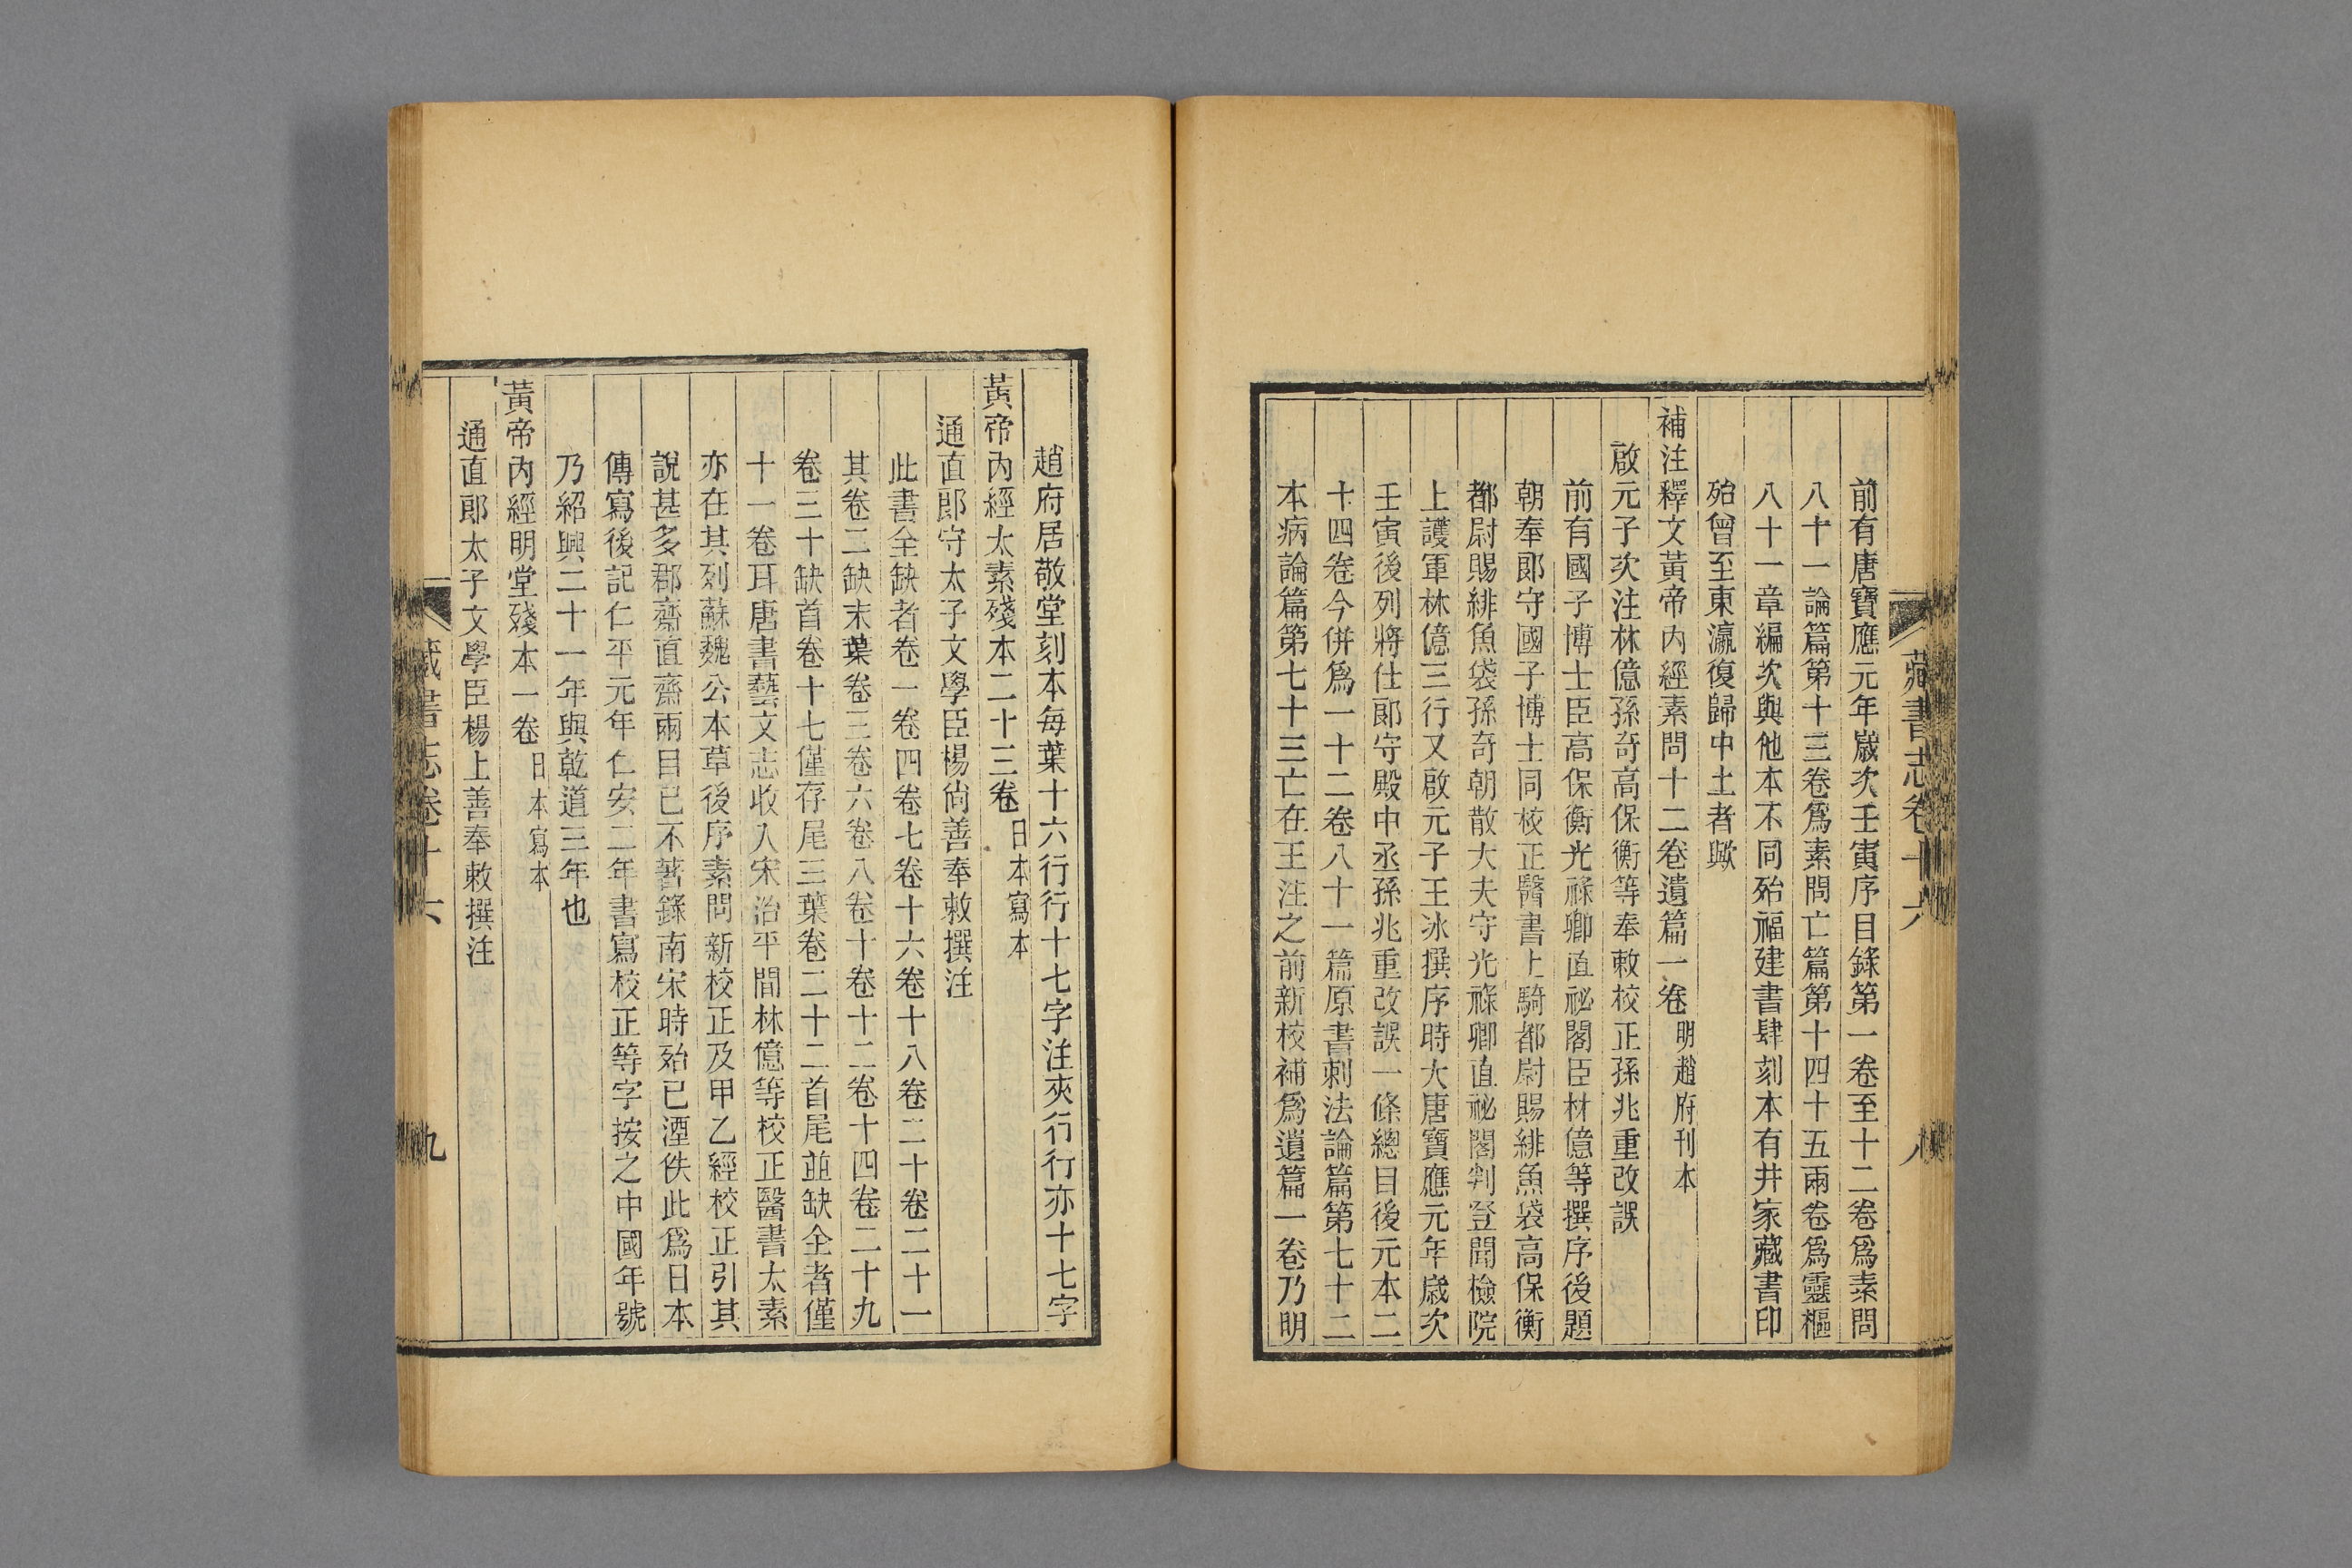 前有唐寶應元年歲次壬寅序目錄第一卷至十二卷爲素問
八十一論篇第十三卷爲素問亡篇第十四十五兩卷爲靈樞
八十一章編次與他本不同殆福建書肆刻本有井家藏書印
殆曾至東瀛復歸中土者歟
補注釋文黃帝內經素問十二卷遺篇一卷明趙府刊本
啟元子次注林億孫奇高保衡等奉敕校正孫兆重改誤
前有國子博士臣高保衡光祿卿直祕閣臣林億等撰序後題
朝奉郎守國子博士同校正醫書上騎都尉賜緋魚袋高保衡
都尉賜緋魚袋孫奇朝散大夫守光祿卿直祕閣判登聞檢院
上護軍林億三行又啟元子王冰撰序時大唐寶應元年歲次
壬寅後列將仕郎守殿中丞孫兆重改誤一條總目後元本二
十四卷今併爲一十二卷八十一篇原書刺法論篇第七十二
本病論篇第七十三亡在王注之前新校補爲遺篇一卷乃明
藏書志卷十六
八
趙府居敬堂刻本每葉十六行行十七字注夾行行亦十七字
黃帝內經太素殘本二十三卷日本寫本
通直郎守太子文學臣楊尙善奉敕撰注
此書全缺者卷一卷四卷七卷十六卷十八卷二十卷二十一
其卷二缺末葉卷三卷六卷八卷十卷十二卷十四卷二十九
卷三十缺首卷十七僅存尾三葉卷二十二首尾並缺全者僅
十一卷耳唐書藝文志收入宋治平間林億等校正醫書太素
亦在其列蘇魏公本草後序素問新校正及甲乙經校正引其
說甚多郡齋直齋兩目已不著錄南宋時殆已湮佚此爲日本
傳寫後記仁平元年仁安二年書寫校正等字按之中國年號
乃紹興二十一年與乾道三年也
黃帝內經明堂殘本一卷日本寫本
通直郎太子文學臣楊上善奉敕撰注
藏書志卷十六
九